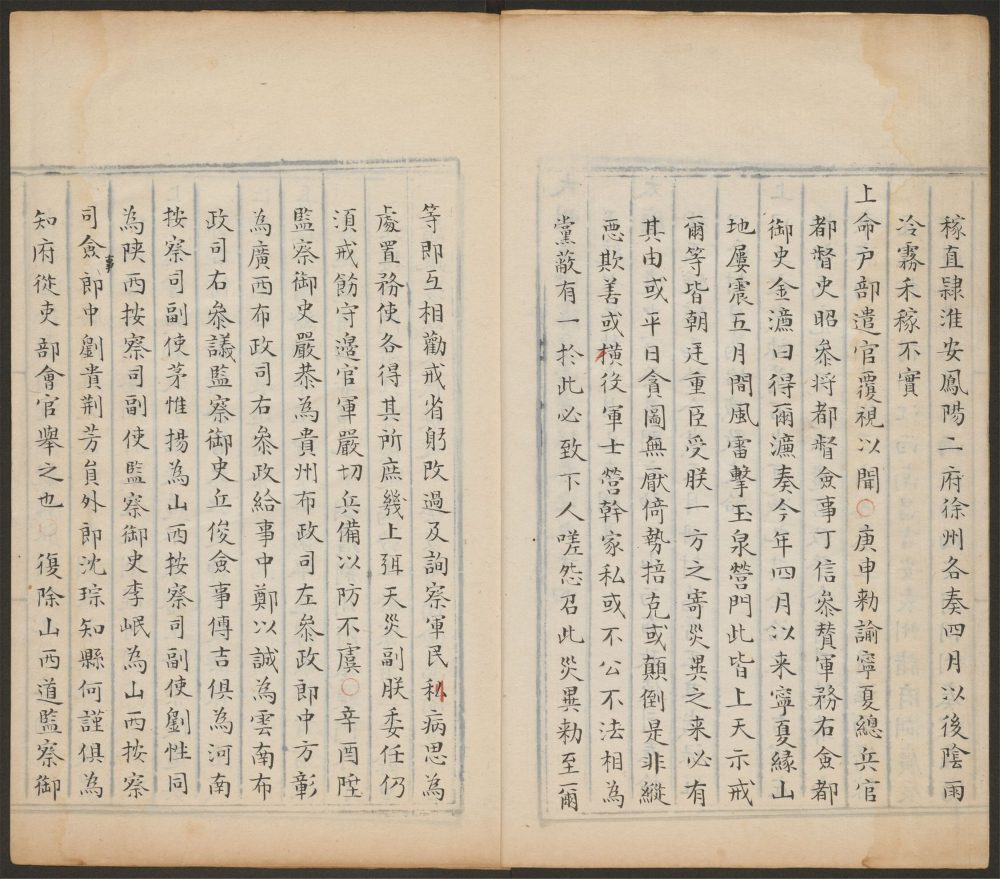 稼直隸淮安鳳陽二府徐州各奏四月以後陰雨
冷霧禾稼不實
上命戶部遣官覆視以聞○庚申勑諭寧夏總兵官
都督史昭叅将都督僉事丁信叅賛軍務右僉都
御史金濂曰得爾濂奏今年四月以来寧夏緣山
地屢震五月間風雷擊玉泉營門此皆上天示戒
爾等皆朝廷重臣受朕一方之寄災異之来必有
其由或平日貪圖無厭倚勢掊克或顛倒是非縱
惡欺善或横役軍士營幹家私或不公不法相為
黨蔽有一於此必致下人嗟怨召此災異勑至爾
等即互相勸戒省躬改過及詢察軍民利病思為
處置務使各得其所庶幾上弭天災副朕委任仍
湏戒飭守邉官軍嚴切兵備以防不虞○辛酉陞
監察御史嚴恭為貴州布政司左叅政郎中方彰
為廣西布政司右叅政給事中鄭以誠為雲南布
政司右叅議監察御史丘俊僉事傅吉俱為河南
按察司副使茅惟揚為山西按察司副使劉性同
為陜西按察司副使監察御史李岷為山西按察
司僉事郎中劉貴荆芳員外郎沈琮知縣何謹俱為
知府從吏部會官舉之也○復除山西道監察御